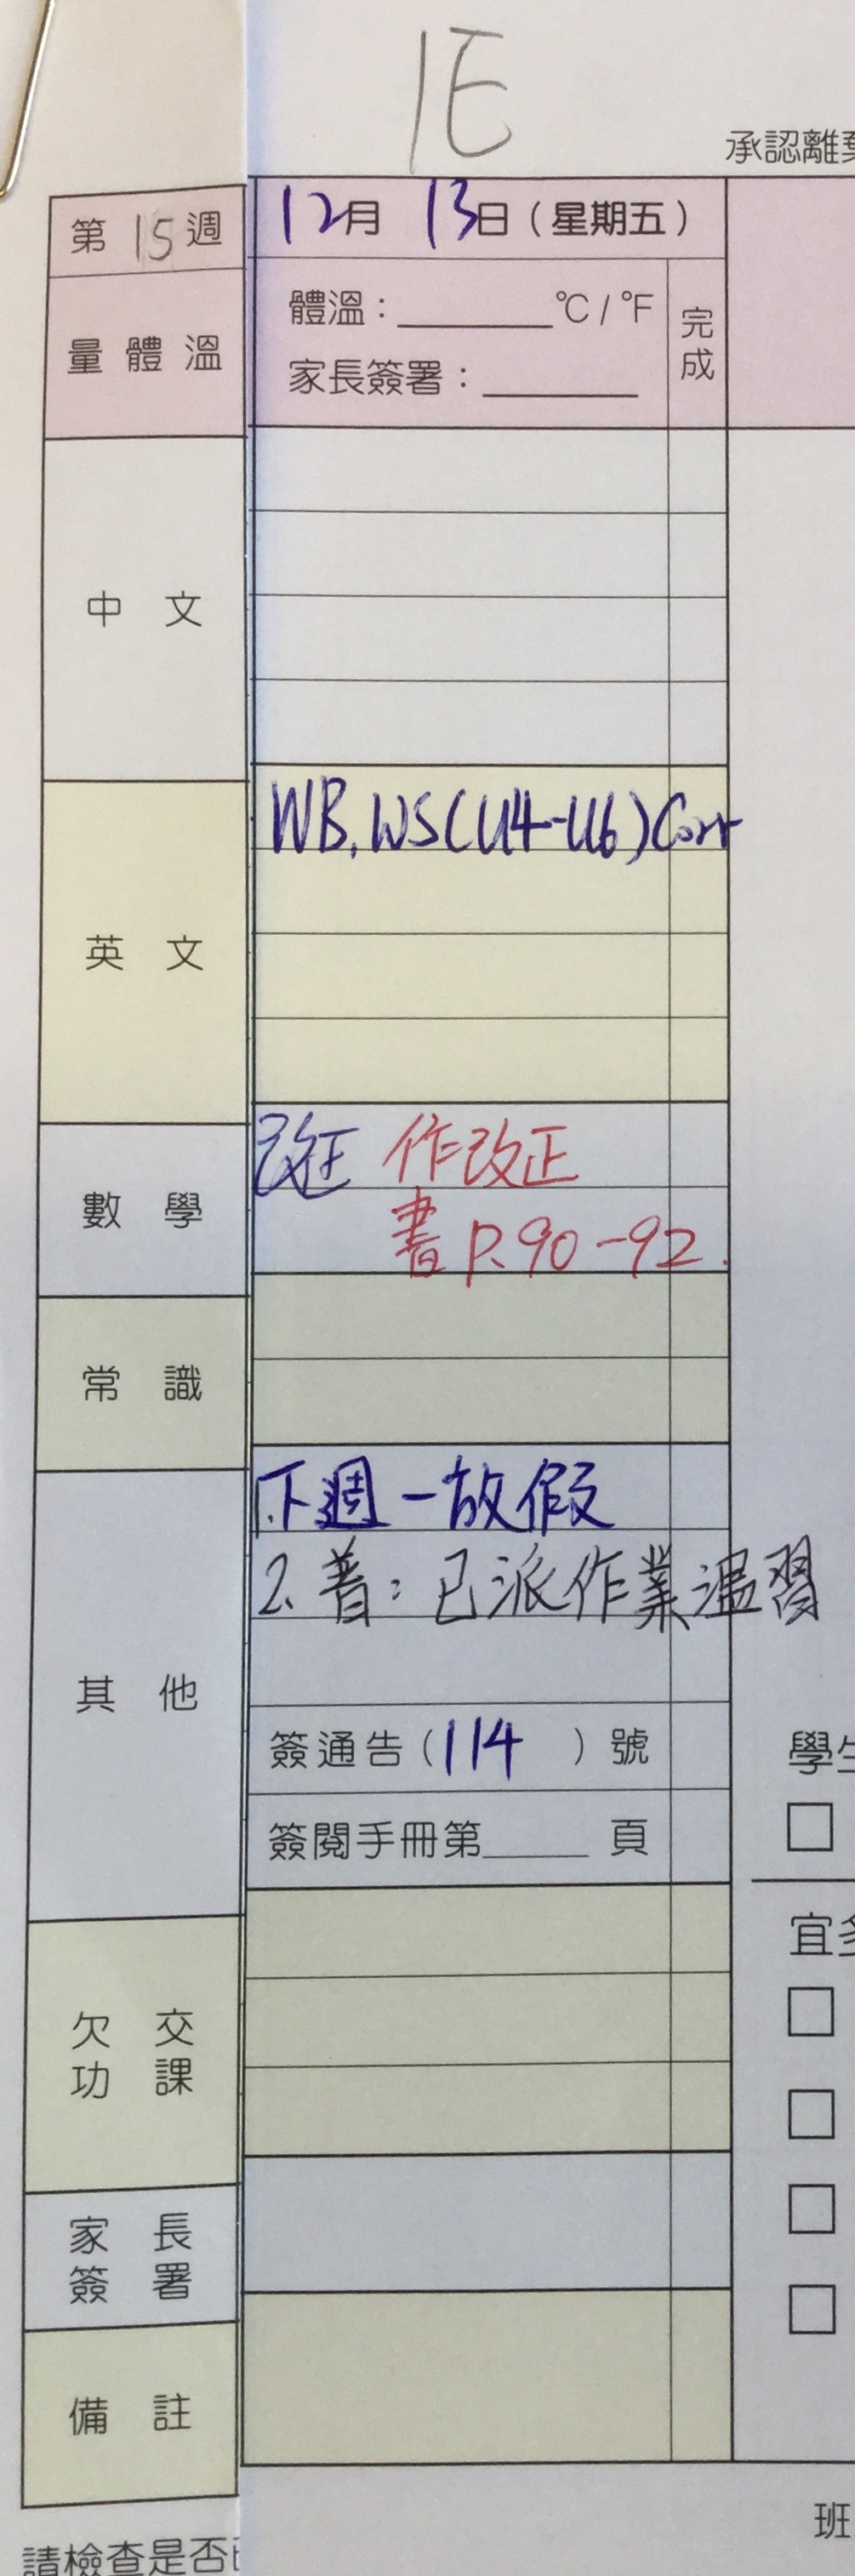 1E
承認離
第15週
12月13日（星期五）
量體溫
體溫：______°C / °F
家長簽署：______
完成
中文
英文
WB, WS(U4-U6)Corr
數學
改正 作改正
書P.90-92.
常識
其他
1.下週一放假
2.普：已派作業溫習
簽通告（114 ）號
簽閱手冊第____頁
學生
宜多
欠交功課
家長簽署
備註
班
請檢查是否